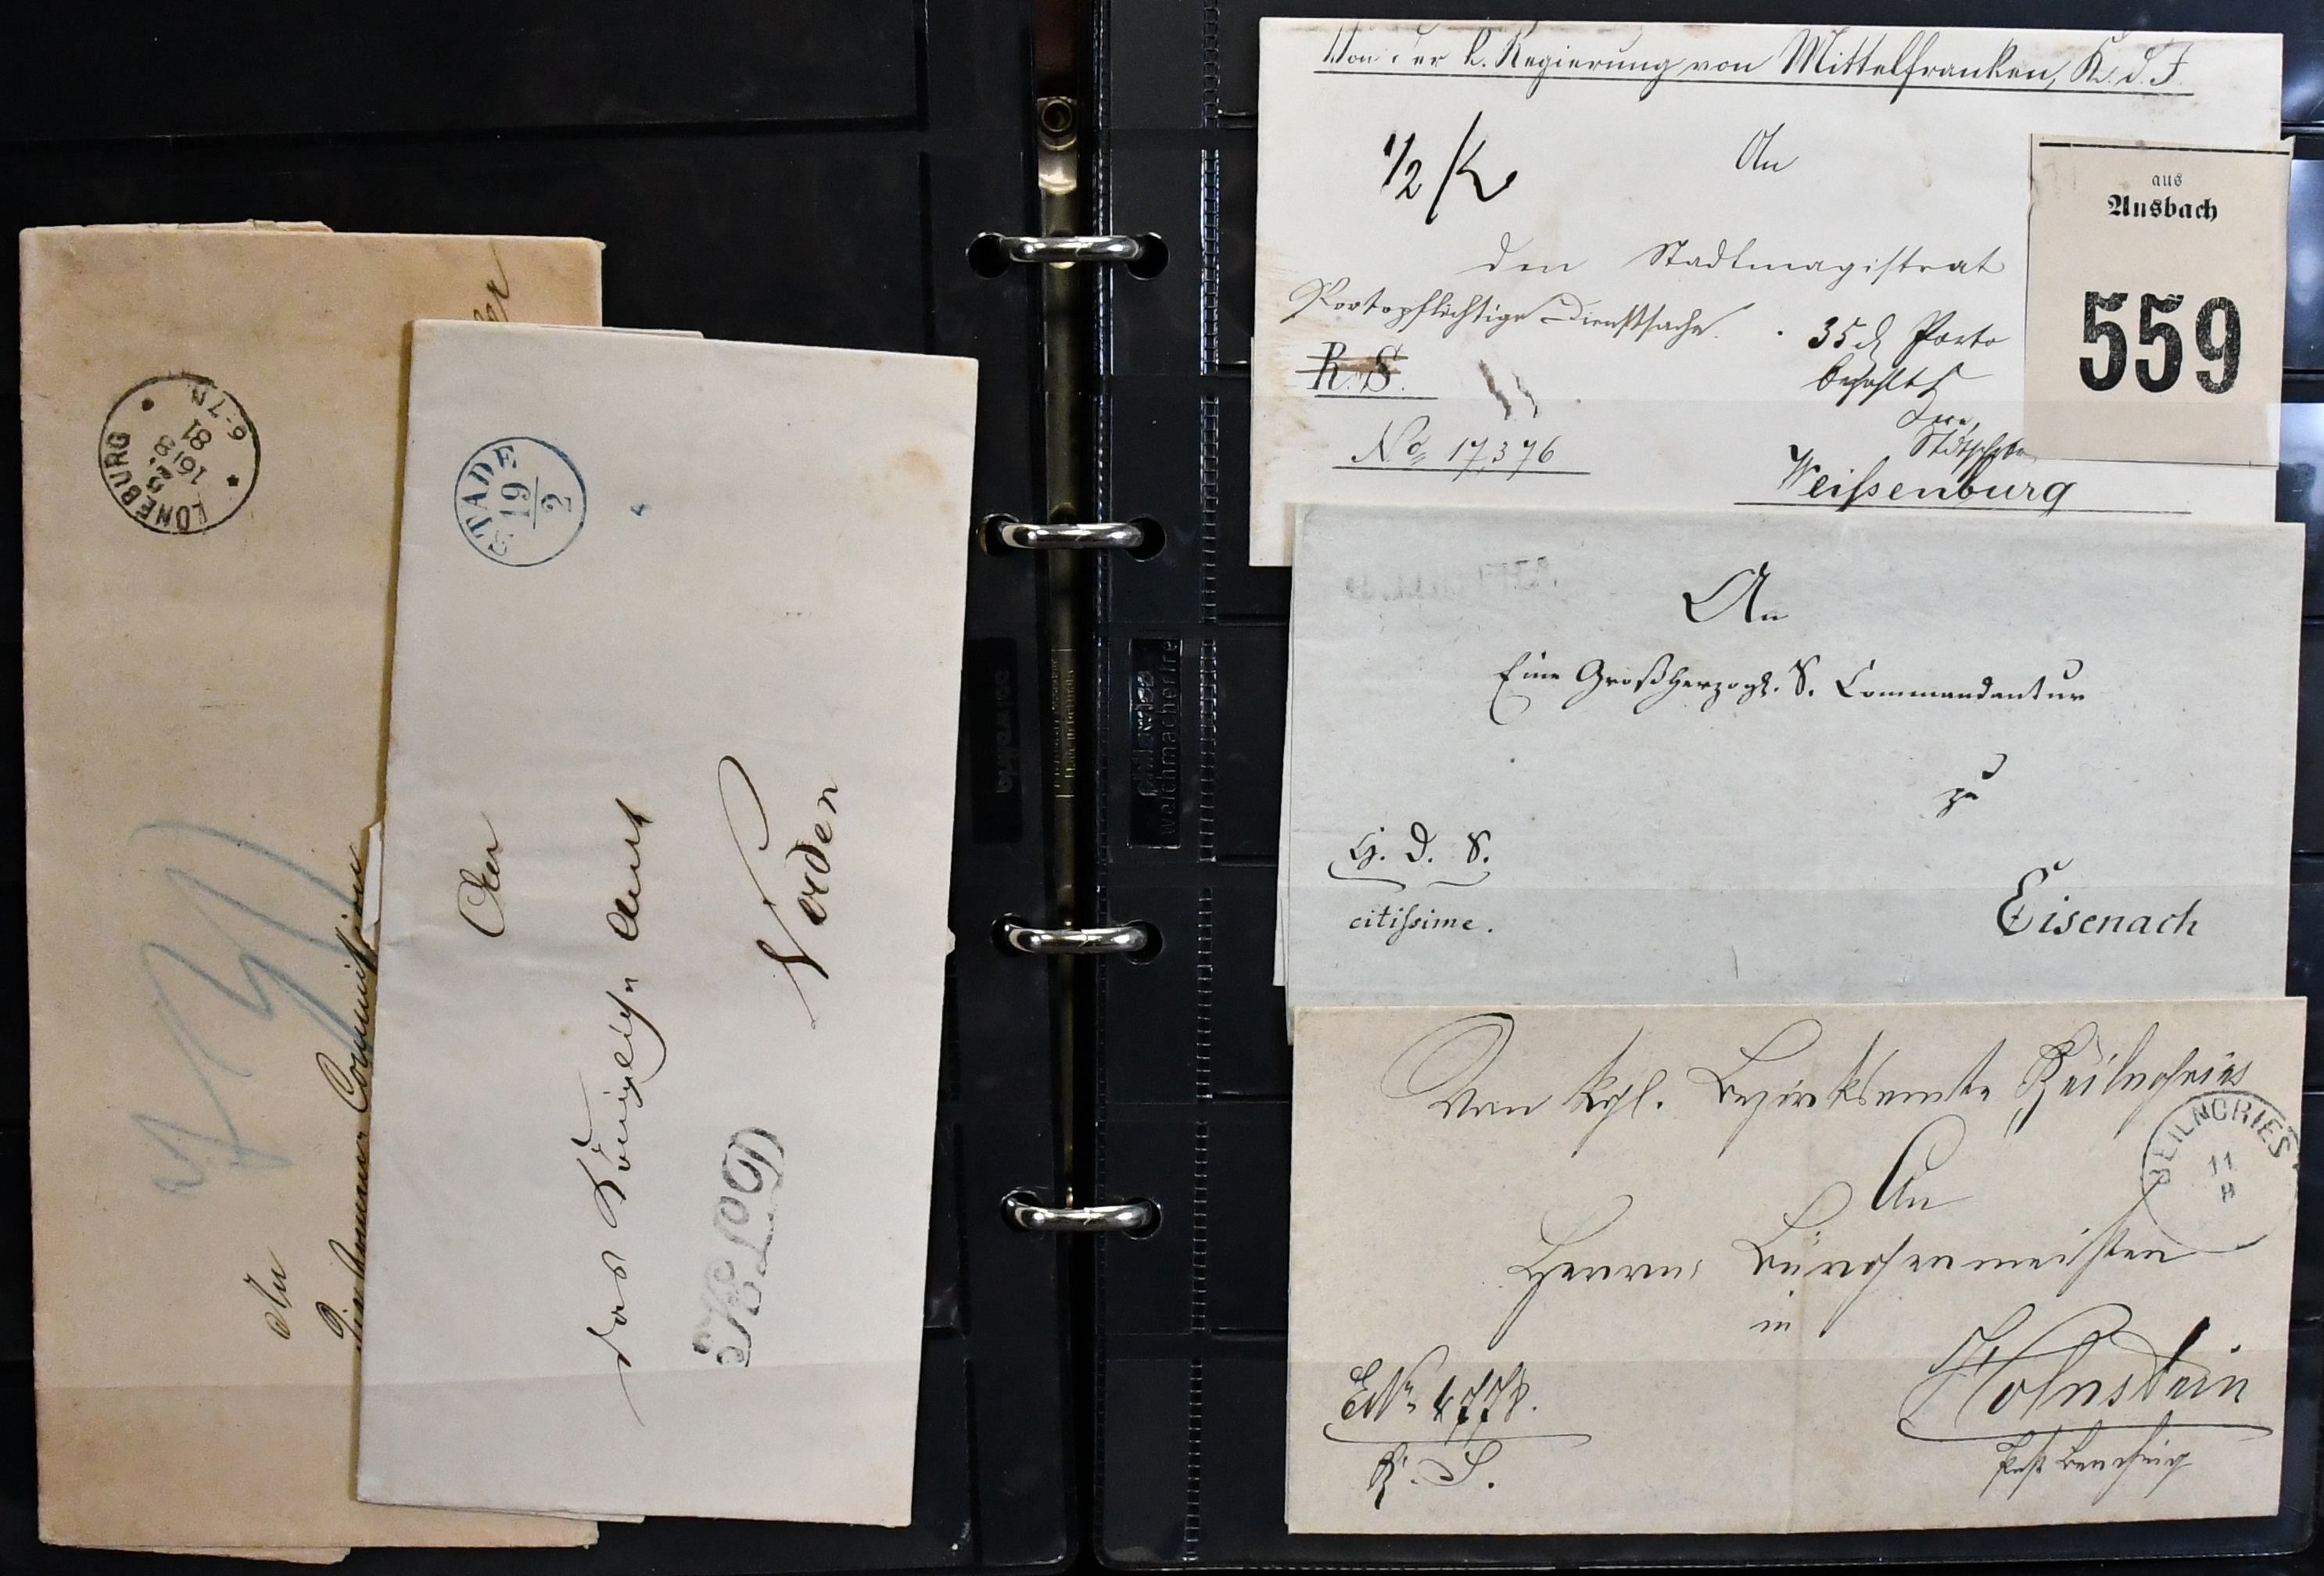 LÜNEBURG
16 3
81
6-7N
An
Commission
STADE
19
2
An
das Königliche Amt
Verden
Von der k. Regierung von Mittelfranken, K. d. I.
1/2 K
An
den Stadtmagistrat
Portopflichtige Dienstsache.
35 Porto
bezahlt
R. S.
No 17376
Weißenburg
aus
Ansbach
559
An
Eine Großherzogl. S. Commandantur
zu
H. D. S.
citissime.
Eisenach
Vom kgl. Bezirksamte Beilngries
BEILNGRIES
11
8
An
Herrn Bürgermeister
in
Holnstein
ENr 4778.
R. S.
Post Berching